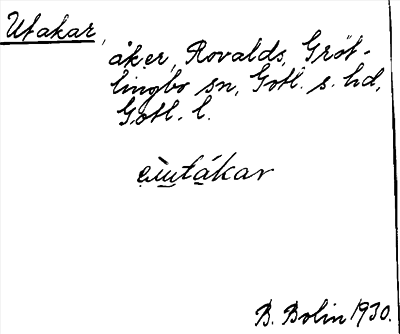 Utakar,
åker, Rovalds, Gröt-
lingbo sn, Gotl. s. hd,
Gotl. l.
B. Bolin 1930.